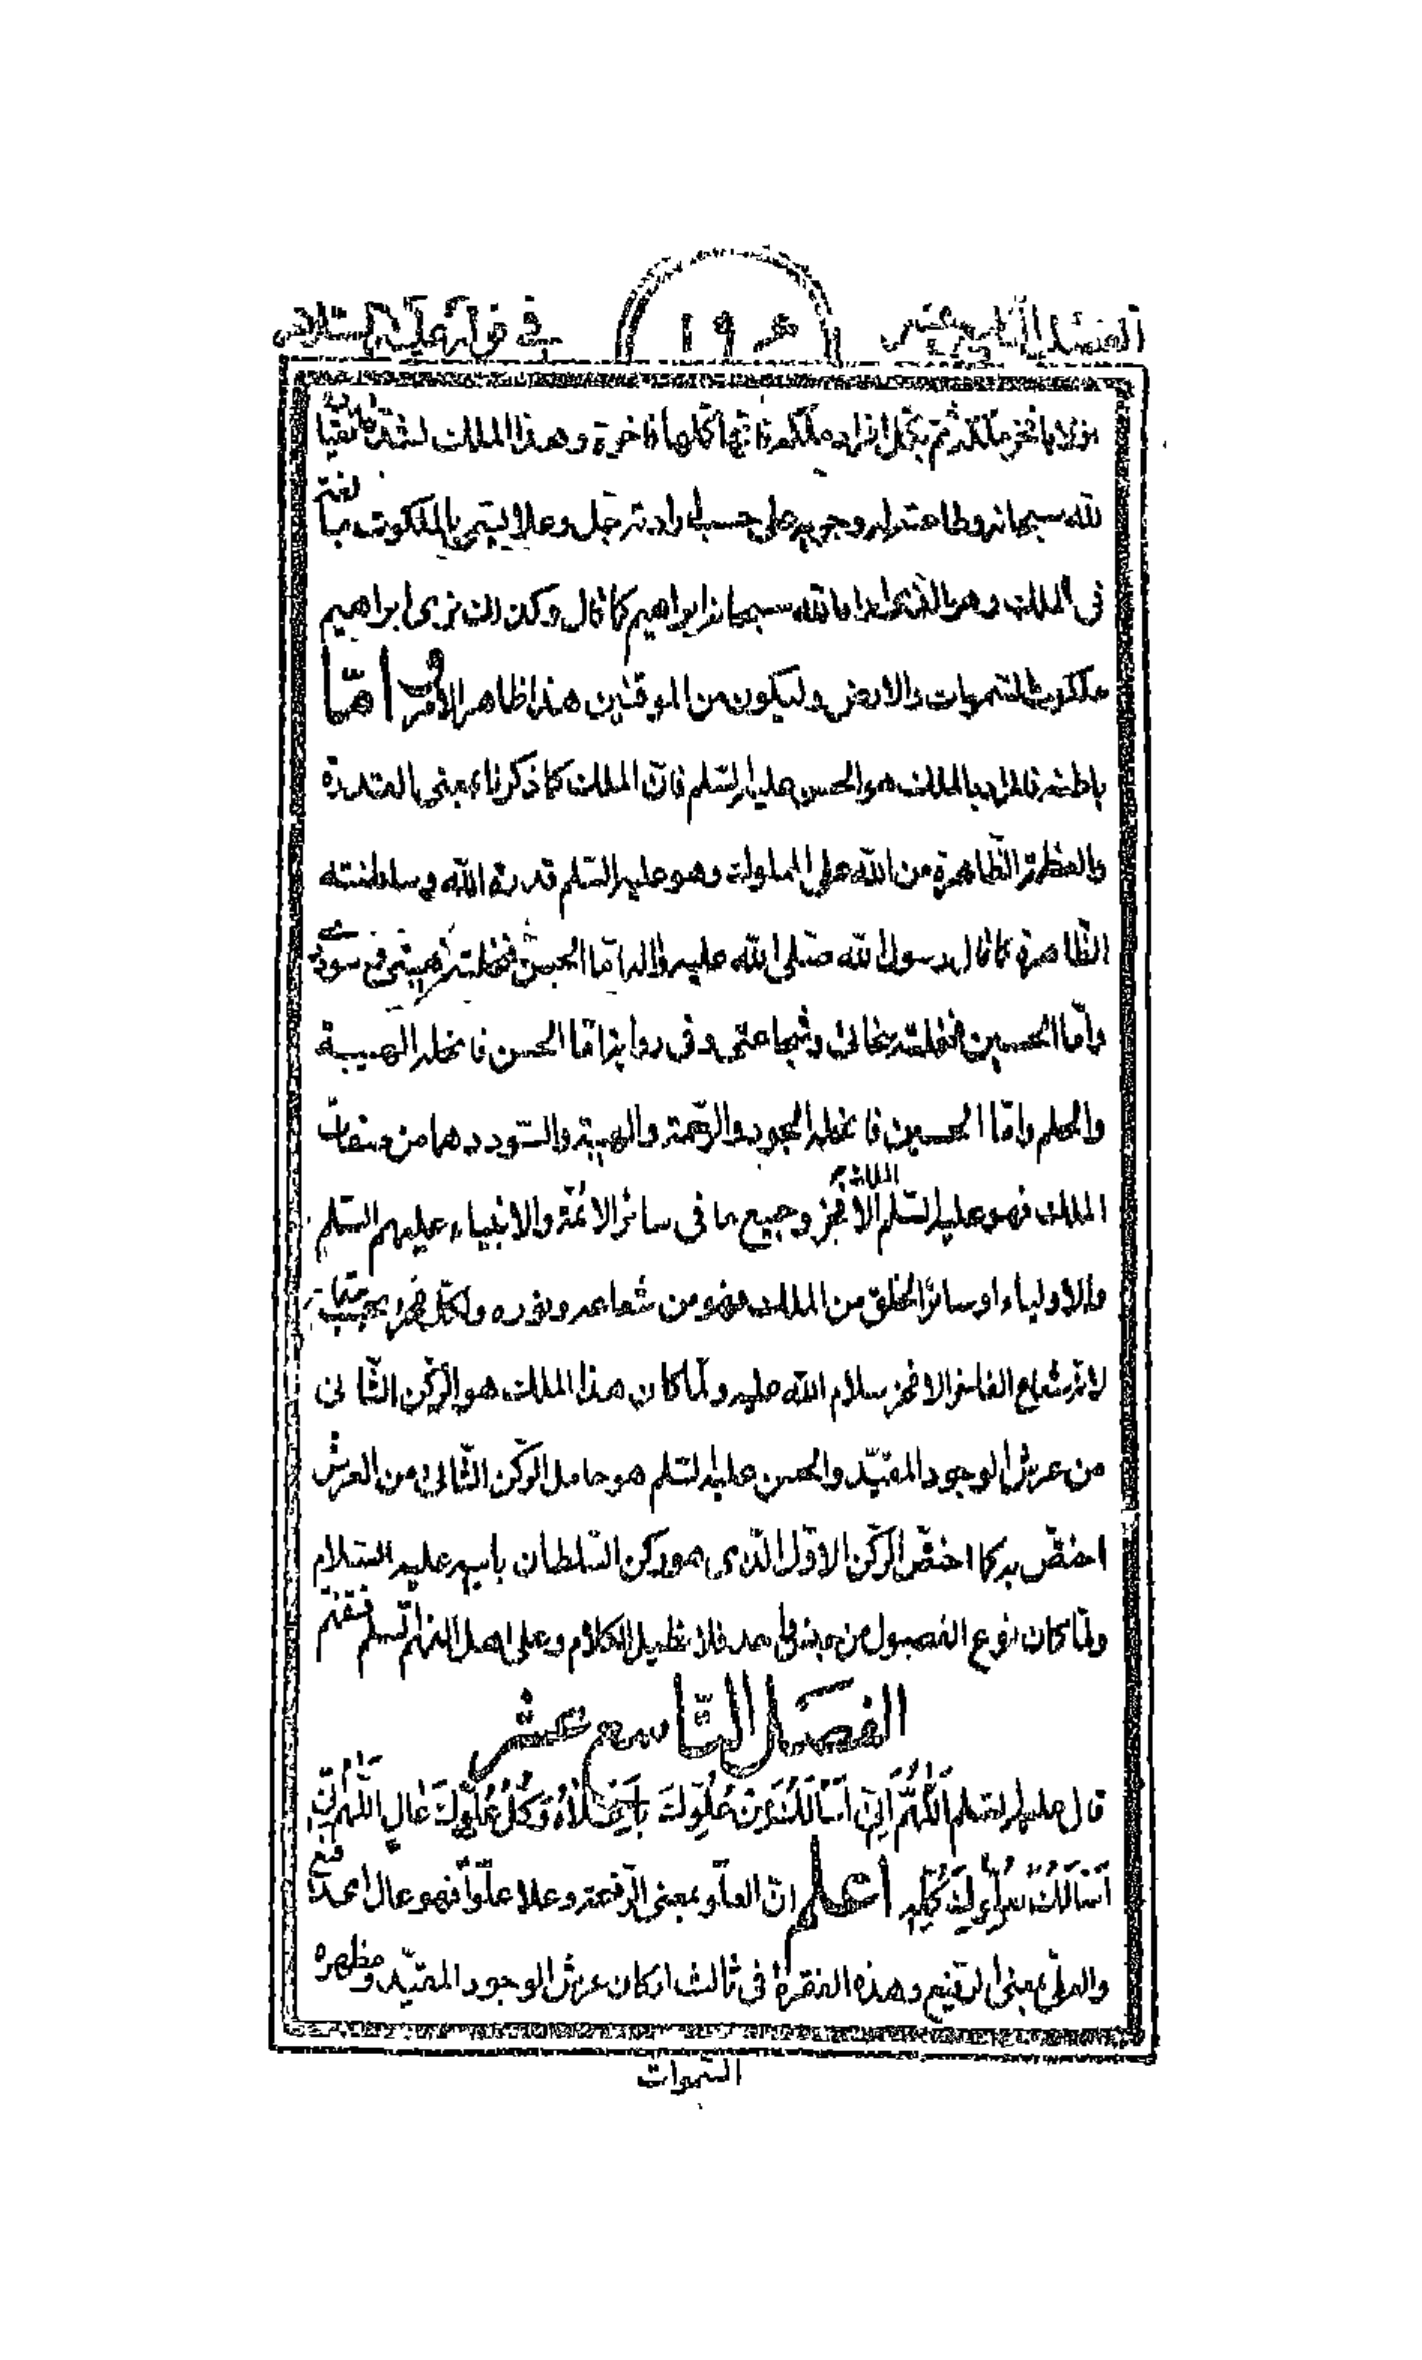 الفصل التاسع عشر ١٩٥ في قوله عليه السلام
اولا بافخر ملكه ثم بكل افراد ملكه فانها كلها فاخرة وهذا الملك لشدة انقياده
لله سبحانه وطاعته له وجريه على حسب ارادته جل وعلا يسمى بالملكوت مبالغة
في الملك وهو الذي اراه الله سبحانه ابراهيم كما قال وكذلك نرى ابراهيم
ملكوت السموات والارض وليكون من الموقنين هذا ظاهر الامر واما
باطنه فالمراد بالملك هو الحسن عليه السلم فان الملك كما ذكرنا بمعنى القدرة
والعظمة الظاهرة من الله على المملوك وهو عليه السلم قدرة الله وسلطنته
الظاهرة كما قال رسول الله صلى الله عليه واله اما الحسن فنحلته هيبتي مع سوددي
واما الحسين فنحلته سخائي وشجاعتي وفي رواية اما الحسن فانحله الهيبة
والحلم واما الحسين فانحله الجود والرحمة والهيبة والسودد هما من صفات
الملك فهو عليه السلم الملك الافخر وجميع ما في سائر الائمة والانبياء عليهم السلم
والاولياء او سائر الخلق من الملك فهو من شعاعه ونوره ولكل فخر بحسب مقامه
لانه شعاع الفاخر الافخر سلام الله عليه ولما كان هذا الملك هو الركن الثاني
من عرش الوجود المقيد والحسن عليه السلم هو حامل الركن الثاني من العرش
اختص به كما اختص الركن الاول الذي هو ركن السلطان بابيه عليه السلام
ولما كان نوع الفصول من جنس واحد فلا نطيل الكلام وعلى اهل الفهم السلم فتفهم
الفصل التاسع عشر
قال عليه السلم اَللّهُمَّ اِنّي اَسْاَلُكَ مِنْ عُلُوِّكَ بِاَعْلاهُ وَكُلُّ عُلُوِّكَ عالٍ اَللّهُمَّ اِنّي
اَسْاَلُكَ بِعُلُوِّكَ كُلِّهِ اعلم ان العلو بمعنى الرفعة وعلا علوا فهو عال اي صعد وارتفع
والعلي بمعنى الرفيع وهذه الفقرة في ثالث اركان عرش الوجود المقيد ومظهره
السموات